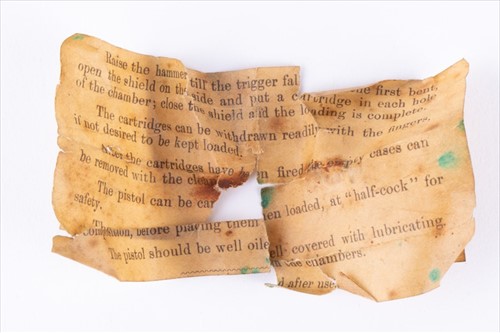 Raise the hammer till the trigger fal the first bent,
open the shield on the side and put a cartridge in each hole
of the chamber; close the shield and the loading is complete.
The cartridges can be withdrawn readily with the fingers,
if not desired to be kept loaded.
the cartridges have n fired the empty cases can
be removed with the clea
The pistol can be car en loaded, at "half-cock" for
safety.
before placing them
The pistol should be well oile ell covered with lubricating.
the chambers.
d after use.